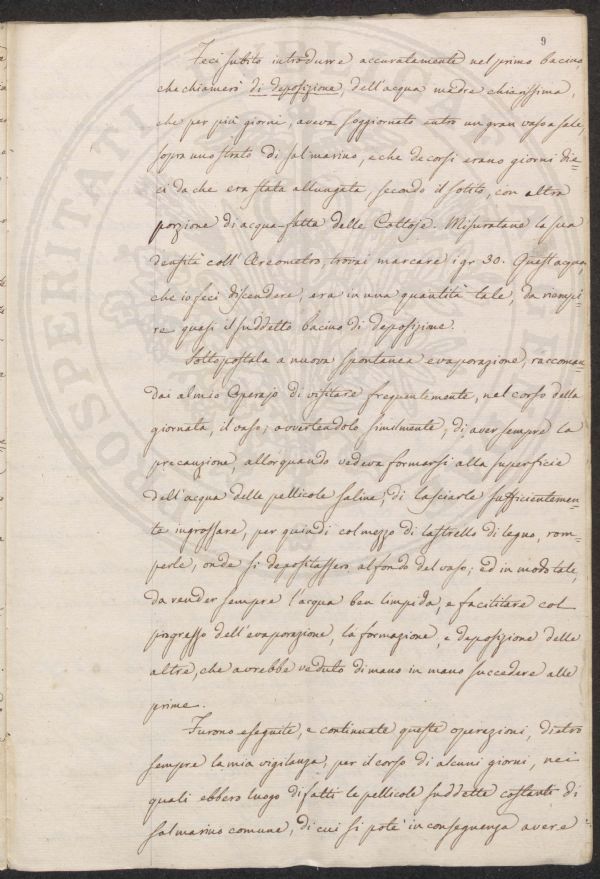 9
Feci subito introdurre accuratamente nel primo bacino,
che chiamerò di deposizione, dell'acqua madre chiarissima,
che per più giorni, aveva soggiornato entro un gran vaso a sale,
sopra uno strato di sal marino, e che decorsi erano giorni die=
ci da che era stata allungata secondo il solito, con altra
porzione di acqua fatta delle Cottoje. Misuratane la sua
densità coll'Areometro, trovai marcare i gr 30. Quest'acqua,
che io feci discendere, era in una quantità tale, da riempi=
re quasi il suddetto bacino di deposizione.
Sottoppostala a nuova spontanea evaporazione, raccoman=
dai al mio Operajo di visitare frequentemente, nel corso della
giornata, il vaso; avvertendolo similmente, di aver sempre la
precauzione, allorquando vedeva formarsi alla superficie
dell'acqua delle pellicole saline, di lasciarle sufficientemen=
te ingrossare, per quindi col mezzo di lastrello di legno, rom=
perle, onde si depositassero al fondo del vaso; ed in modo tale,
da render sempre l'acqua ben limpida, e facilitare col
progresso dell'evaporazione, la formazione, e deposizione delle
altre, che avrebbe veduto di mano in mano succedere alle
prime.
Furono eseguite, e continuate queste operazioni, dietro
sempre la mia vigilanza, per il corso di alcuni giorni, nei
quali ebbero luogo difatti le pellicole suddette costanti di
sal marino comune, di cui si potè in conseguenza avere
PROSPERITATI